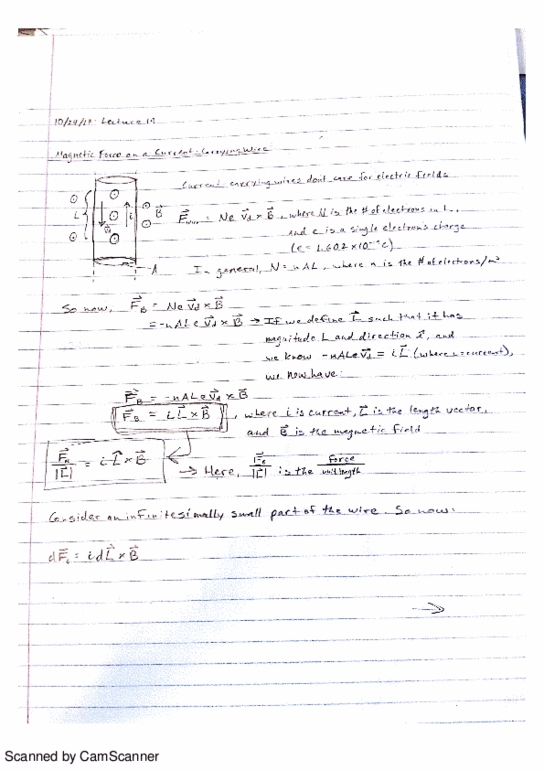 Lecture
Magnetic Force on a Current-Carrying Wire
Current carrying wires dont care for electric fields
L i B⃗ v⃗d
F⃗ = Ne v⃗d × B⃗, where N is the # of electrons in L,
and e is a single electrons charge
(e = 1.602 × 10 C)
A
In general, N = nAL, where n is the # of electrons/m³
So now, F⃗B = Ne v⃗d × B⃗
= -nALe v⃗d × B⃗ → If we define L⃗ such that it has
magnitude L and direction i⃗, and
we know -nALe v⃗d = i L⃗ (where i=current),
we now have:
F⃗B = -nALe v⃗d × B⃗
F⃗B = i L⃗ × B⃗, where i is current, L⃗ is the length vector,
and B⃗ is the magnetic field
F⃗B/|L⃗| = i L̂ × B⃗
→ Here, F⃗B/|L⃗| is the force/unit length
Consider an infinitesimally small part of the wire. So now:
dF⃗ = i dL⃗ × B⃗
→
Scanned by CamScanner